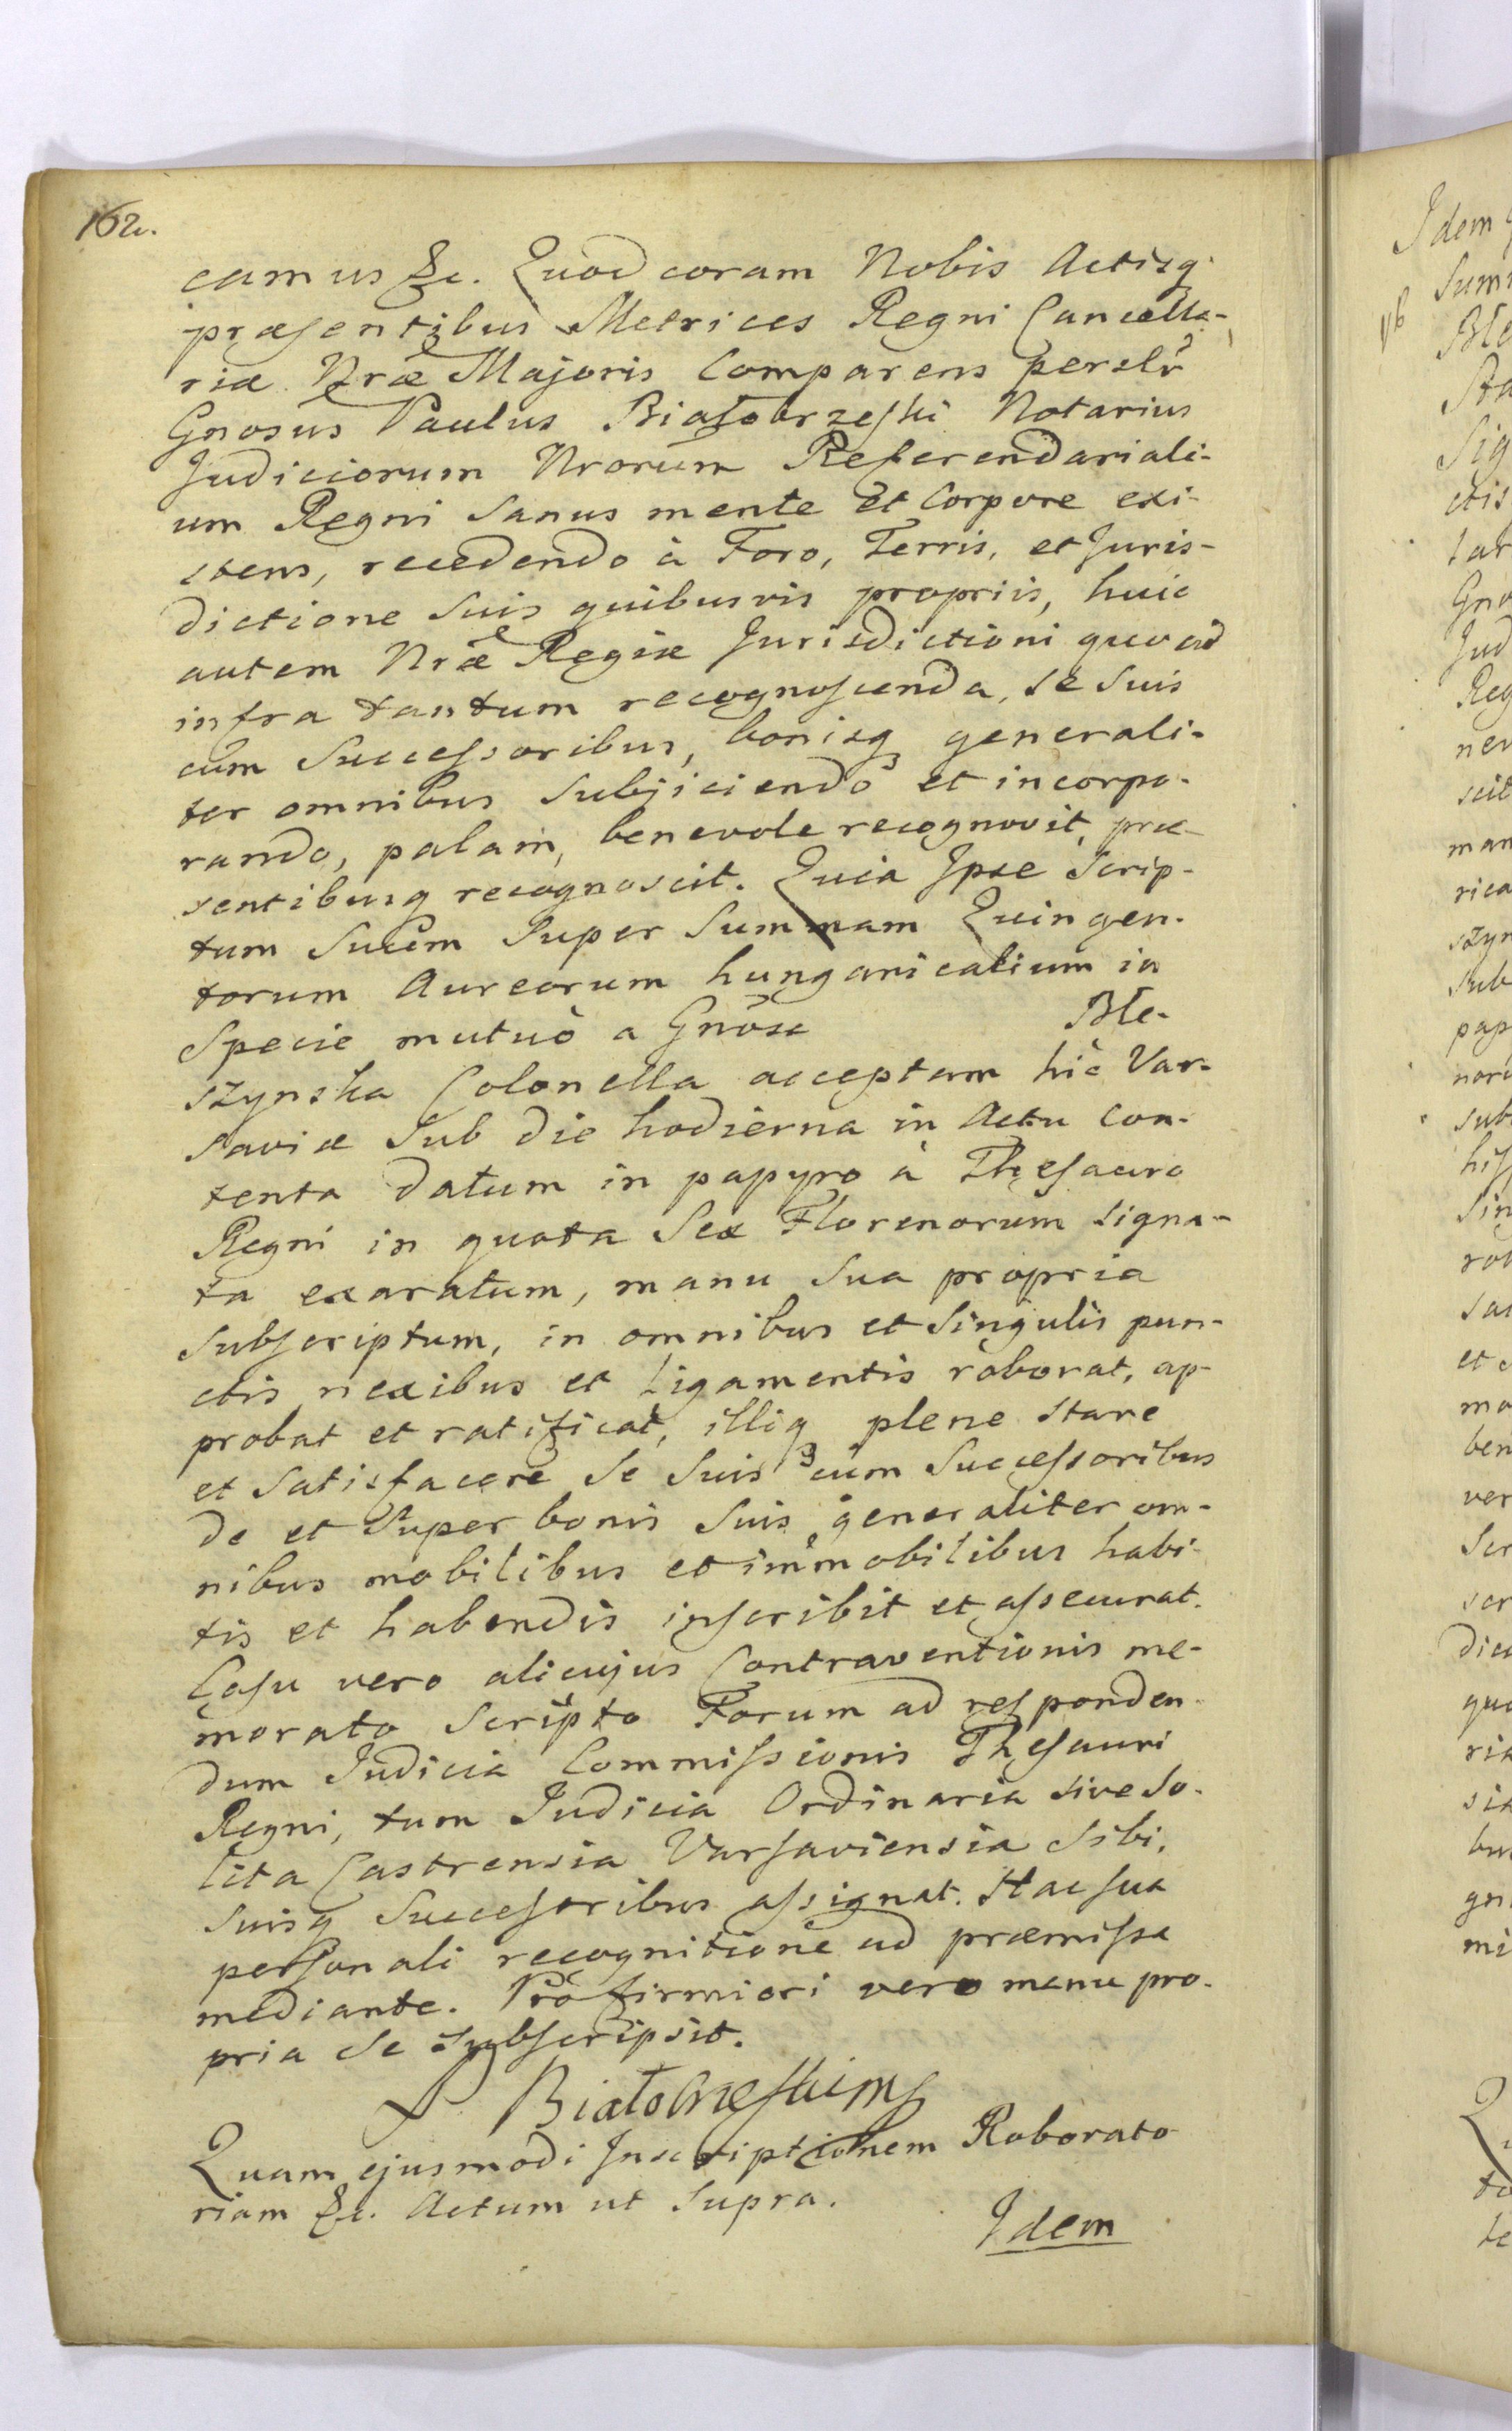 162.
camus &c. Quod coram Nobis Actisq
præsentibus Metrices Regni Cancella-
riæ Nræ Majoris Comparens perslr
Gnosus Paulus Białobrzeski Notarius
Judiciorum Nrorum Referendariali-
um Regni Sanus mente et Corpore exi-
stens, recedendo à Foro, Terris, et Juris-
dictione Suis quibusvis propriis, huic
autem Nræ Regiæ Jurisdictioni quoad
infra tantum recognoscenda, se suis
cum Successoribus, bonisq generali-
ter omnibus Subjiciendo et incorpo-
rando, palam, benevole recognovit, præ-
sentibusq recognoscit. Quia Ipse Scrip-
tum Suum Super Summam Quingen-
torum Aureorum hungaricalium in
Specie mutuò a Gnosa Ble-
szynska Colonella acceptam hic Var-
saviæ Sub die hodierna in Actu con-
tenta datum in papyro à Thesauro
Regni in quota Sex Florenorum signa-
ta exaratum, manu Sua propria
Subscriptum, in omnibus et Singulis pun-
ctis nexibus et ligamentis roborat, ap-
probat et ratificat, illiq plene stare
et Satisfacere Se Suis cum Successoribus
de et Super bonis Suis generaliter om-
nibus mobilibus et immobilibus habi-
tis et habendis inscribit et assecurat.
Casu vero alicujus Contraventionis me-
morato Scripto Forum ad responden-
dum Judicia Commissionis Thesauri
Regni, tum Judicia Ordinaria sive So-
lita Castrensia Varsaviensia Sibi,
Suisq Successoribus assignat. Hac sua
personali recognitione ad præmissa
mediante. Pro firmiori vero manu pro-
pria Se Subscripsit.
P Białobrzeski mp
Quam ejusmodi Inscriptionem Roborato-
riam &c. Actum ut Supra.
Idem